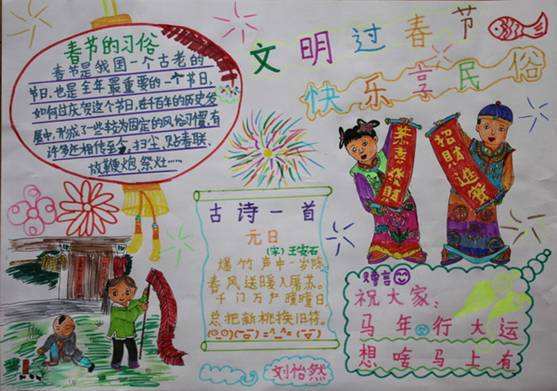 文明过春节
快乐享民俗
春节的习俗
春节是我国一个古老的
节日,也是全年最重要的一个节日,
如何过庆贺这个节日,千百年的历史发
展中,形成了一些较为固定的风俗习惯,有
许多还相传至今,扫尘、贴春联、
放鞭炮、祭灶……
恭喜发财
招财进宝
古诗一首
元日
(宋)王安石
爆竹声中一岁除
春风送暖入屠苏。
千门万户曈曈日
总把新桃换旧符。
赠言
祝大家:
马年行大运
想啥马上有
刘怡然